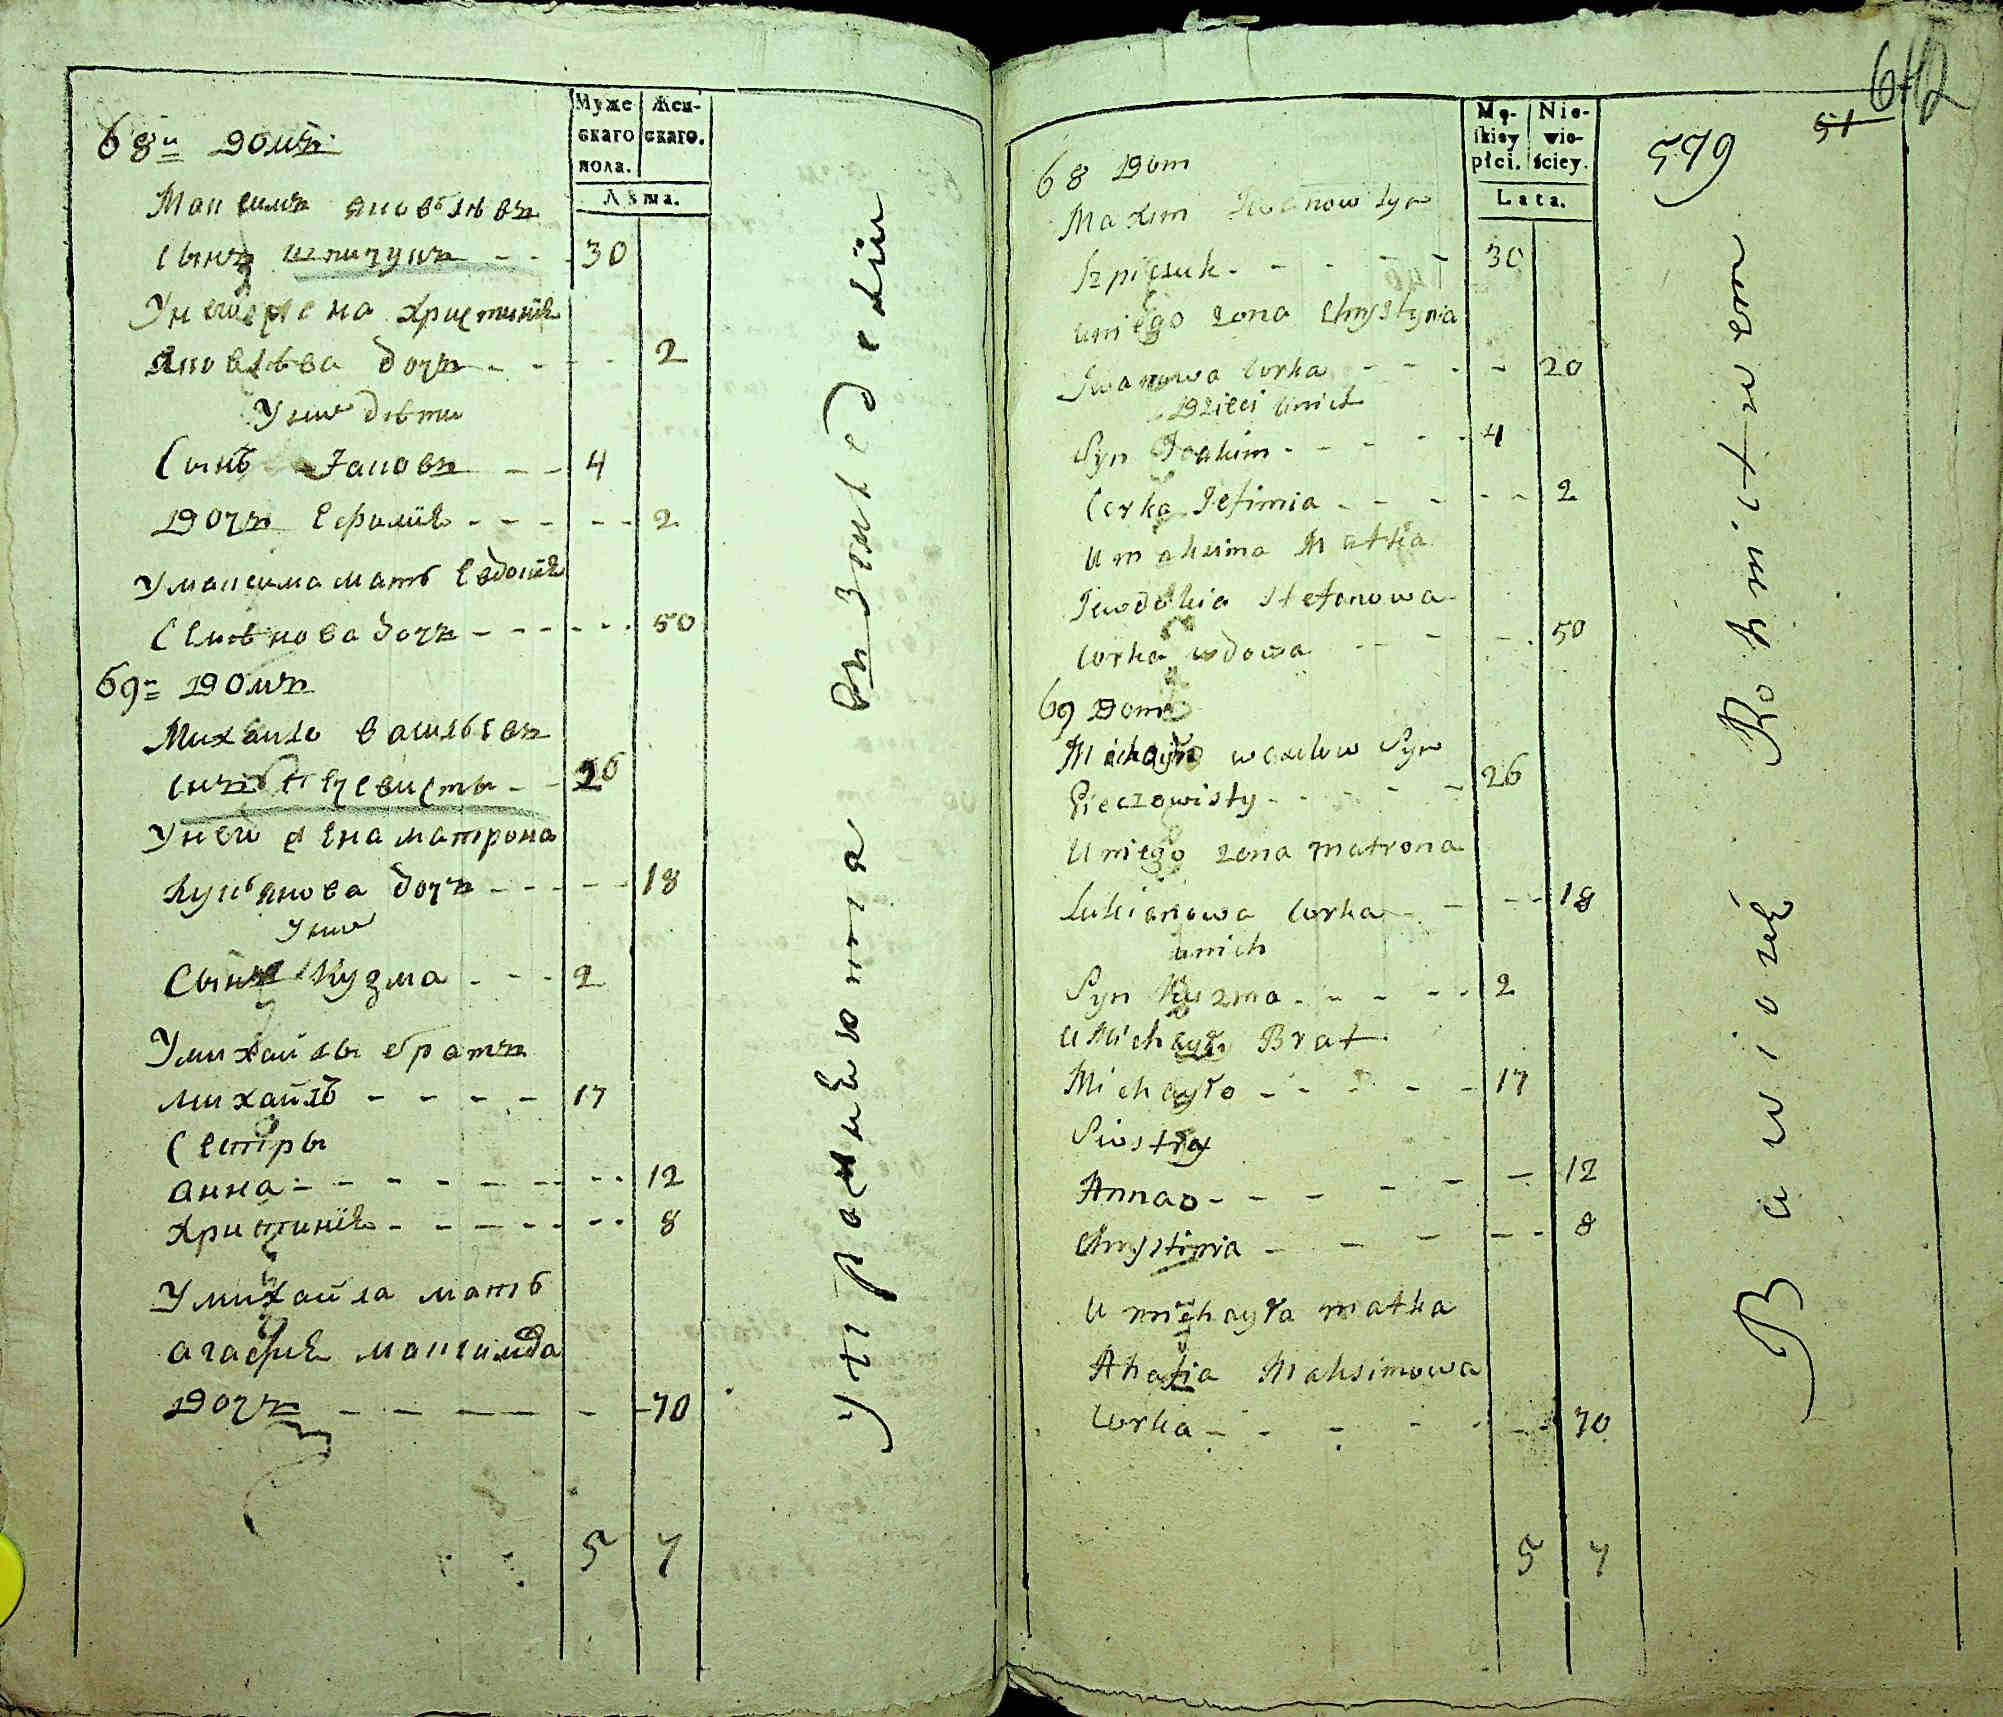 Муже
скаго
пола.
Жен-
скаго.
Лѣта.
68й домъ
Максимъ яковлевъ
сынъ шпичукъ - - - 30
У него жена христинѣ
яковлева дочъ - - - 2
У них дѣти
Сынъ - - 4
Дочъ ефимiѣ - - - 2
У максима мать Евдокiѣ
дочъ - - - 50
69й домъ
Михайло васильевъ
сынъ - - 26
У него жена матрона
лукьянова дочъ - - - 18
У них
Сынъ Кузма - - - 2
У михайлы братъ
михайлъ - - - - 17
Сестры
анна - - - - 12
христинѣ - - - - 8
У михайла мать
агафиѣ максимова
дочъ - - - - 70
5 7
Упражнѣюнтя
Mę-
skiey
płci.
Nie-
wie-
ściey.
Lata.
579
51
642
68 Dom
Maxim Iwanow Syn
Szpiczuk - - - - 30
u niego zona Chrystynia
Iwanowa Corka - - - - 20
Dzieci u nich
Syn Joakim - - - - 4
Corka Jefimia - - - - 2
U maksima Matka
Jewdokia Stefanowa
Corka wdowa - - - 50
69 Dom
Michayło wasilow Syn
Pieczowisty - - - - 26
U niego zona matrona
Lukianowa Corka - - - 18
u nich
Syn Kuzma - - - - 2
U Michayły Brat
Michayło - - - - 17
Siostry
Anna - - - - 12
Chrystinia - - - - 8
U michayła matka
Ahafia Maksimowa
Corka - - - - 70
5 7
Bawionę Rolnictwem